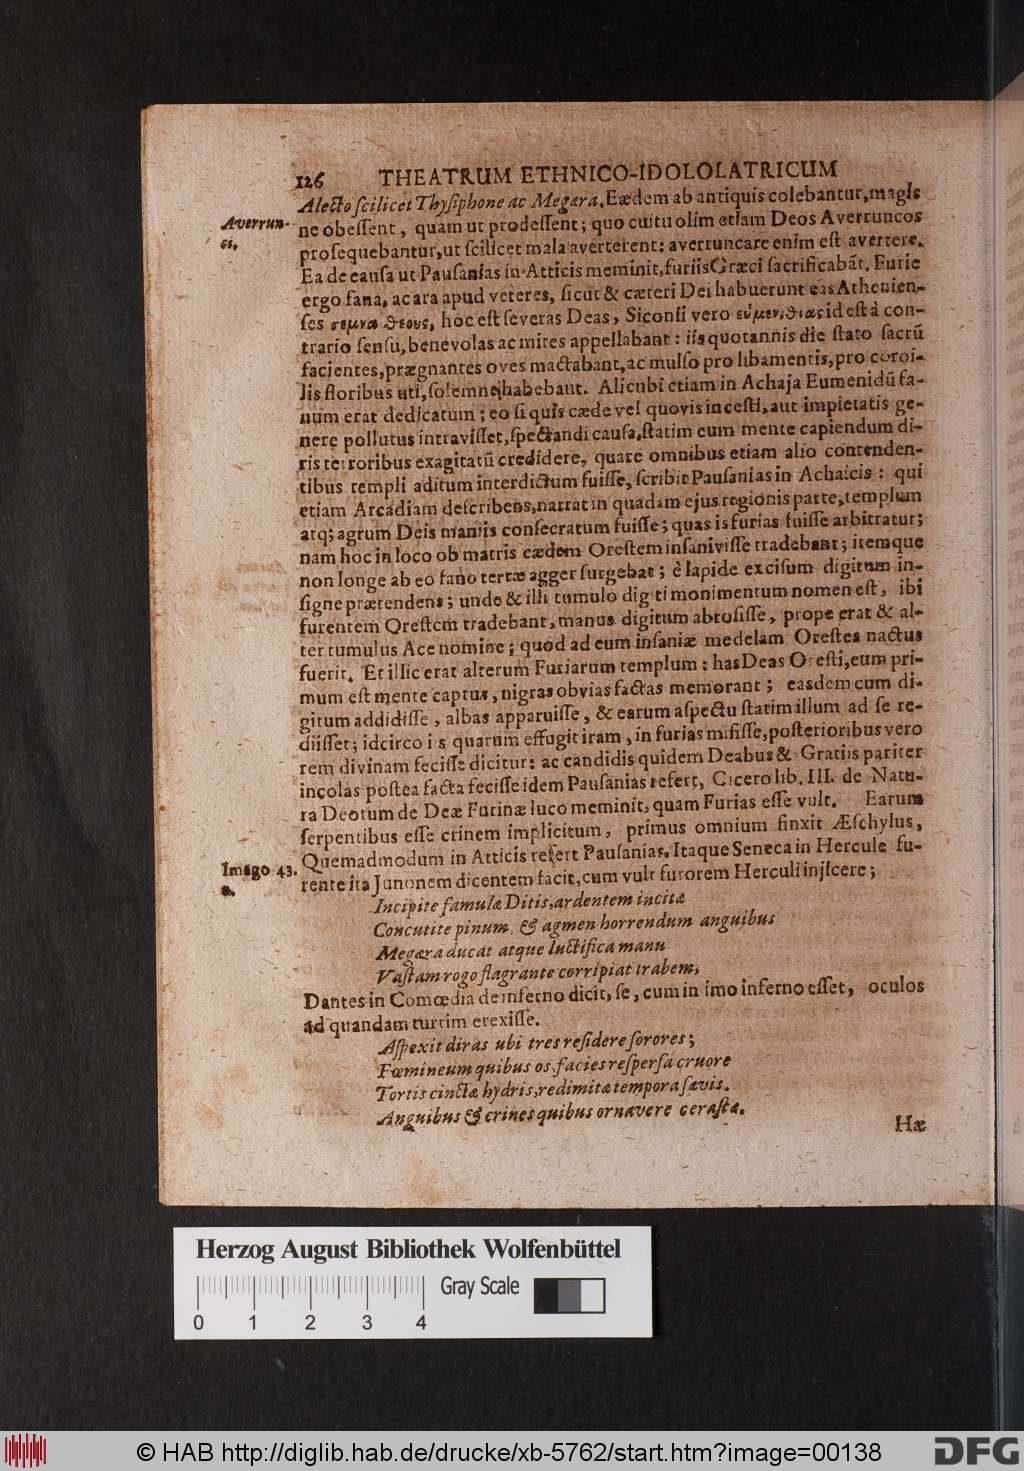 126 THEATRUM ETHNICO-IDOLOLATRICUM
Alecto ſcilicet Thyſiphone ac Megara. Eædem ab antiquis colebantur, magis
Averrun-
ci.
ne obeſſent, quam ut prodeſſent; quo cultu olim etiam Deos Averruncos
proſequebantur, ut ſcilicet mala averterent: averruncare enim eſt avertere.
Ea de cauſa ut Pauſanias in Atticis meminit, furiis Græci ſacrificabāt. Furiæ
ergo fana, ac ara apud veteres, ſicut & cæteri Dei habuerunt eas Athenien-
ſes σεμνας θεους, hoc eſt ſeveras Deas, Siconſi vero εὐμενίδας id eſt à con-
trario ſenſu, benevolas ac mites appellabant: iis quotannis die ſtato ſacrū
facientes, prægnantes oves mactabant, ac mulſo pro libamentis, pro coroi-
lis floribus uti, ſolemne habebant. Alicubi etiam in Achaja Eumenidū fa-
num erat dedicatum; eo ſi quis cæde vel quovis inceſti, aut impietatis ge-
nere pollutus intraviſſet, ſpectandi cauſa, ſtatim eum mente capiendum di-
ris terroribus exagitatū credidere, quare omnibus etiam alio contenden-
tibus templi aditum interdictum fuiſſe, ſcribit Pauſanias in Achaicis: qui
etiam Arcadiam deſcribens, narrat in quadam ejus regionis parte, templum
atq; agrum Deis maniis conſecratum fuiſſe; quas is furias fuiſſe arbitratur;
nam hoc in loco ob matris cædem Oreſtem inſaniviſſe tradebant; itemque
non longe ab eo fano terræ agger ſurgebat; è lapide exciſum digitum in-
ſigne prætendens; unde & illi tumulo digiti monimentum nomen eſt, ibi
furentem Oreſtem tradebant, manus digitum abroſiſſe, prope erat & al-
ter tumulus Ace nomine; quod ad eum inſaniæ medelam Oreſtes nactus
fuerit. Et illic erat alterum Furiarum templum: has Deas Oreſti, eum pri-
mum eſt mente captus, nigras obvias factas memorant; easdem cum di-
gitum addidiſſe, albas apparuiſſe, & earum aſpectu ſtatim illum ad ſe re-
diiſſet; idcirco iis quarum effugit iram, in furias miſiſſe, poſterioribus vero
rem divinam feciſſe dicitur: ac candidis quidem Deabus & Gratiis pariter
incolas poſtea facta feciſſe idem Pauſanias refert, Cicero lib. III. de Natu-
ra Deorum de Deæ Furinæ luco meminit, quam Furias eſſe vult. Earum
ſerpentibus eſſe crinem implicitum, primus omnium finxit Æſchylus,
Quemadmodum in Atticis refert Pauſanias. Itaque Seneca in Hercule fu-
Imago 43.
a.
rente ita Junonem dicentem facit, cum vult furorem Herculi injicere;
Incipite famulæ Ditis, ardentem incitæ
Concutite pinum, & agmen horrendum anguibus
Megæra ducat atque luctifica manu
Vaſtam rogo flagrante corripiat trabem,
Dantes in Comœdia de inferno dicit, ſe, cum in imo inferno eſſet, oculos
ad quandam turrim erexiſſe.
Aſpexit diras ubi tres reſidere ſorores;
Fœmineum quibus os, facies reſperſa cruore
Tortis cinctæ hydris, redimitæ tempora ſævis.
Anguibus & crines quibus ornavere ceraſtæ.
Hæ
Herzog August Bibliothek Wolfenbüttel
Gray Scale
0 1 2 3 4
© HAB http://diglib.hab.de/drucke/xb-5762/start.htm?image=00138
DFG